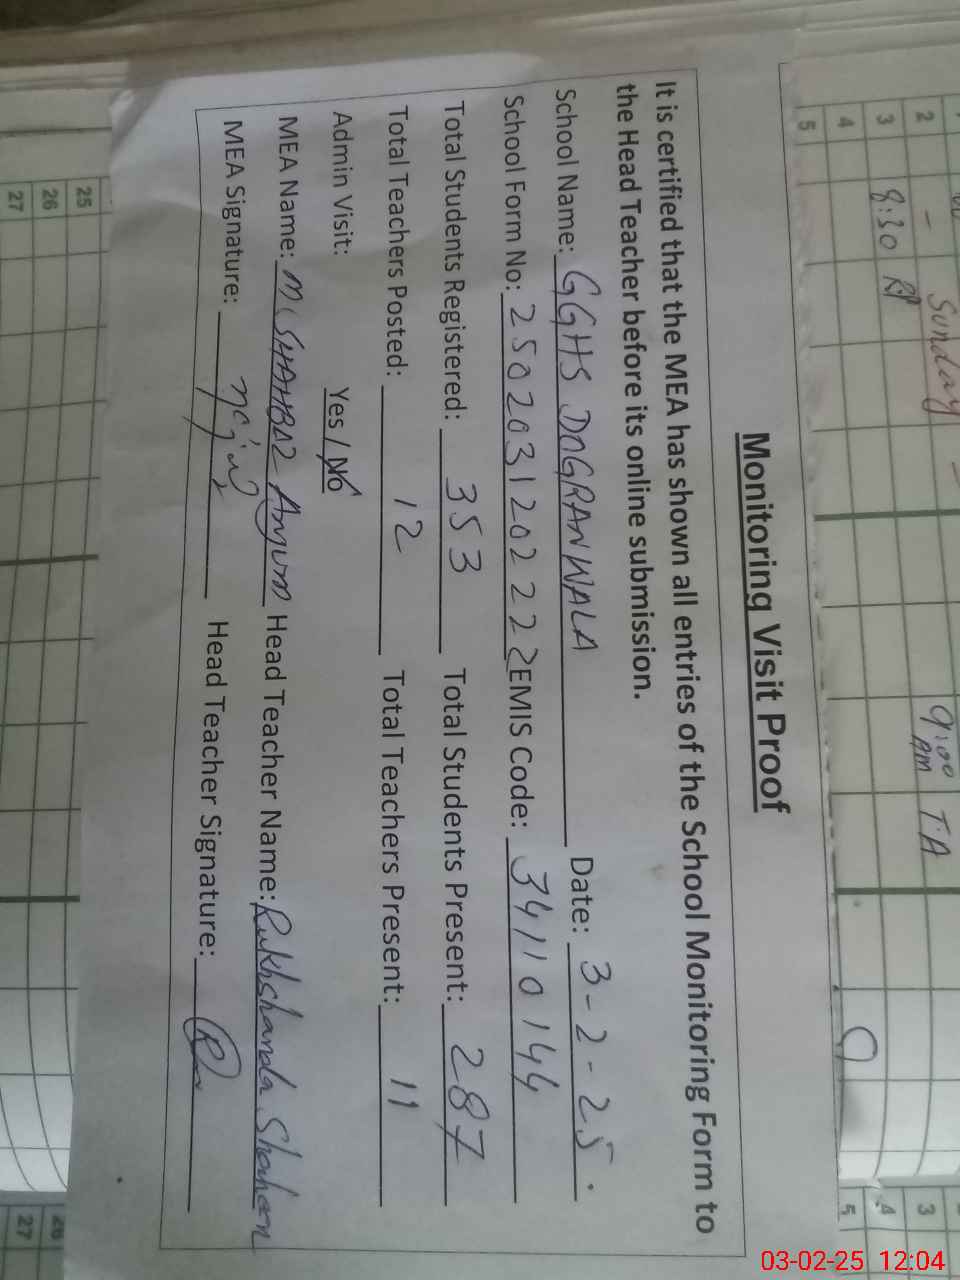 Monitoring Visit Proof
It is certified that the MEA has shown all entries of the School Monitoring Form to
the Head Teacher before its online submission.
School Name: GGHS DOGRANWALA Date: 3-2-25.
School Form No: 2502031202222 EMIS Code: 34110144
Total Students Registered: 353 Total Students Present: 287
Total Teachers Posted: 12 Total Teachers Present: 11
Admin Visit: Yes / No
MEA Name: M. SHAHBAZ Anjum Head Teacher Name: Rukhshanda Shaheen
MEA Signature: Head Teacher Signature:
2
3
4
5
Sunday
8:30
9:00
AM
TA
3
4
5
25
26
27
26
27
03-02-25 12:04